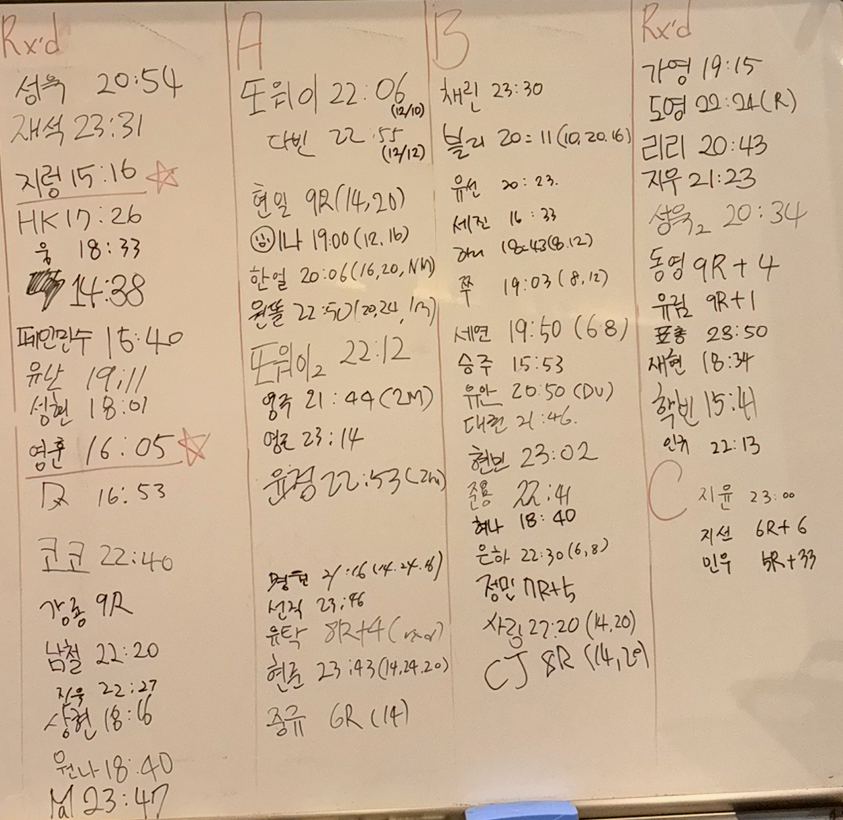 Rx'd
성욱 20:54
재석 23:31
지렁 15:16
HK 17:26
움 18:33
14:38
페인민수 15:40
유난 19:11
성현 18:01
영훈 16:05
16:53
코코 22:40
강룡 9R
남철 22:20
진욱 22:27
상현 18:16
원나 18:40
M 23:47
A
또위이 22:06
(12/10)
다빈 22:55
(12/12)
현일 9R(14,20)
이나 19:00(12,16)
한일 20:06(16,20,NM)
원똘 22:50(20,24,
또위이2 22:12
영주 21:44(2M)
영로 23:14
윤정 22:53(2m)
21:16(14.24.
선직 23:46
유탁 8R+4(
현준 23:43(14,24.20)
중규 6R(14)
B
채린 23:30
블리 20:11(10.20.16)
유선 20:23.
세진 16:33
하니 18:43(8.12)
쭈 19:03(8,12)
세연 19:50(6.8)
승주 15:53
유안 20:50(DU)
대권 21:46.
현빈 23:02
준용 22:41
혜나 18:40
은하 22:30(6,8)
정민 7R+5
사림 27:20(14,20)
CJ 8R(14,20)
Rx'd
가영 19:15
도영 22:24(R)
리리 20:43
지우 21:23
성욱2 20:34
동영 9R+4
유림 9R+1
표홍 23:50
재현 18:34
학빈 15:41
22:13
C
지윤 23:00
지선 6R+6
민우 5R+33